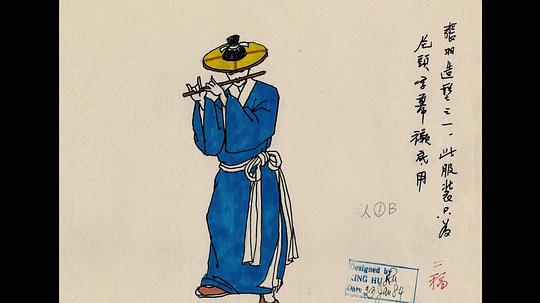 張羽造型之一．此服裝只為
片頭字幕襯底用
二稿
人①B
Designed by
KING HU
Date Jan 84